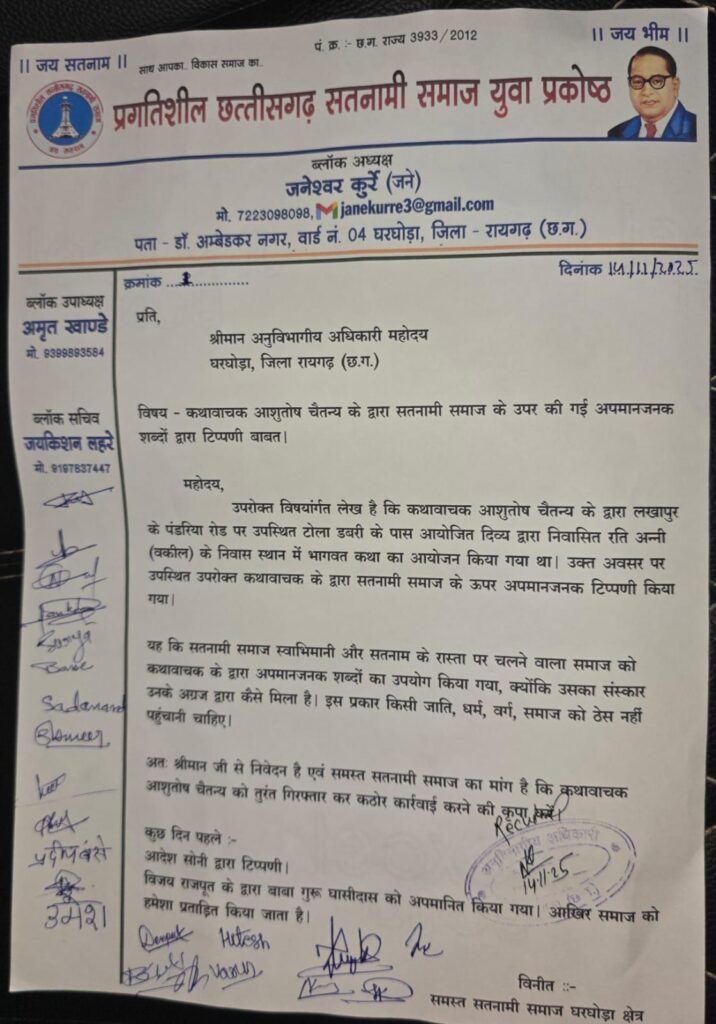 पं. क्र. :- छ.ग. राज्य 3933/2012
।। जय सतनाम ।।
साथ आपका.. विकास समाज का..
।। जय भीम ।।
प्रगतिशील छत्तीसगढ़ सतनामी समाज युवा प्रकोष्ठ
ब्लॉक अध्यक्ष
जनेश्वर कुर्रे (जने)
मो. 7223098098, janekurre3@gmail.com
पता - डॉ. अम्बेडकर नगर, वार्ड नं. 04 घरघोड़ा, जिला - रायगढ़ (छ.ग.)
क्रमांक ...1..............
दिनांक 14/11/2025.
ब्लॉक उपाध्यक्ष
अमृत खाण्डे
मो. 9399893584
ब्लॉक सचिव
जयकिशन लहरे
मो. 9197837447
प्रति,
श्रीमान अनुविभागीय अधिकारी महोदय
घरघोड़ा, जिला रायगढ़ (छ.ग.)
विषय - कथावाचक आशुतोष चैतन्य के द्वारा सतनामी समाज के उपर की गई अपमानजनक
शब्दों द्वारा टिप्पणी बाबत।
महोदय,
उपरोक्त विषयांर्गत लेख है कि कथावाचक आशुतोष चैतन्य के द्वारा लखापुर
के पंडरिया रोड पर उपस्थित टोला डबरी के पास आयोजित दिव्य द्वारा निवासित रति अन्नी
(वकील) के निवास स्थान में भागवत कथा का आयोजन किया गया था। उक्त अवसर पर
उपस्थित उपरोक्त कथावाचक के द्वारा सतनामी समाज के ऊपर अपमानजनक टिप्पणी किया
गया।
यह कि सतनामी समाज स्वाभिमानी और सतनाम के रास्ता पर चलने वाला समाज को
कथावाचक के द्वारा अपमानजनक शब्दों का उपयोग किया गया, क्योंकि उसका संस्कार
उनके अग्रज द्वारा कैसे मिला है। इस प्रकार किसी जाति, धर्म, वर्ग, समाज को ठेस नहीं
पहुंचानी चाहिए।
अतः श्रीमान जी से निवेदन है एवं समस्त सतनामी समाज का मांग है कि कथावाचक
आशुतोष चैतन्य को तुरंत गिरफ्तार कर कठोर कार्रवाई करने की कृपा करें।
कुछ दिन पहले :-
आदेश सोनी द्वारा टिप्पणी।
विजय राजपूत के द्वारा बाबा गुरू घासीदास को अपमानित किया गया। आखिर समाज को
हमेशा प्रताड़ित किया जाता है।
अनुविभागीय अधिकारी
14-11-25
Sadanand
प्रदीप बंसे
उमेश
Deepak Hitesh
विनीत ::-
समस्त सतनामी समाज घरघोड़ा क्षेत्र